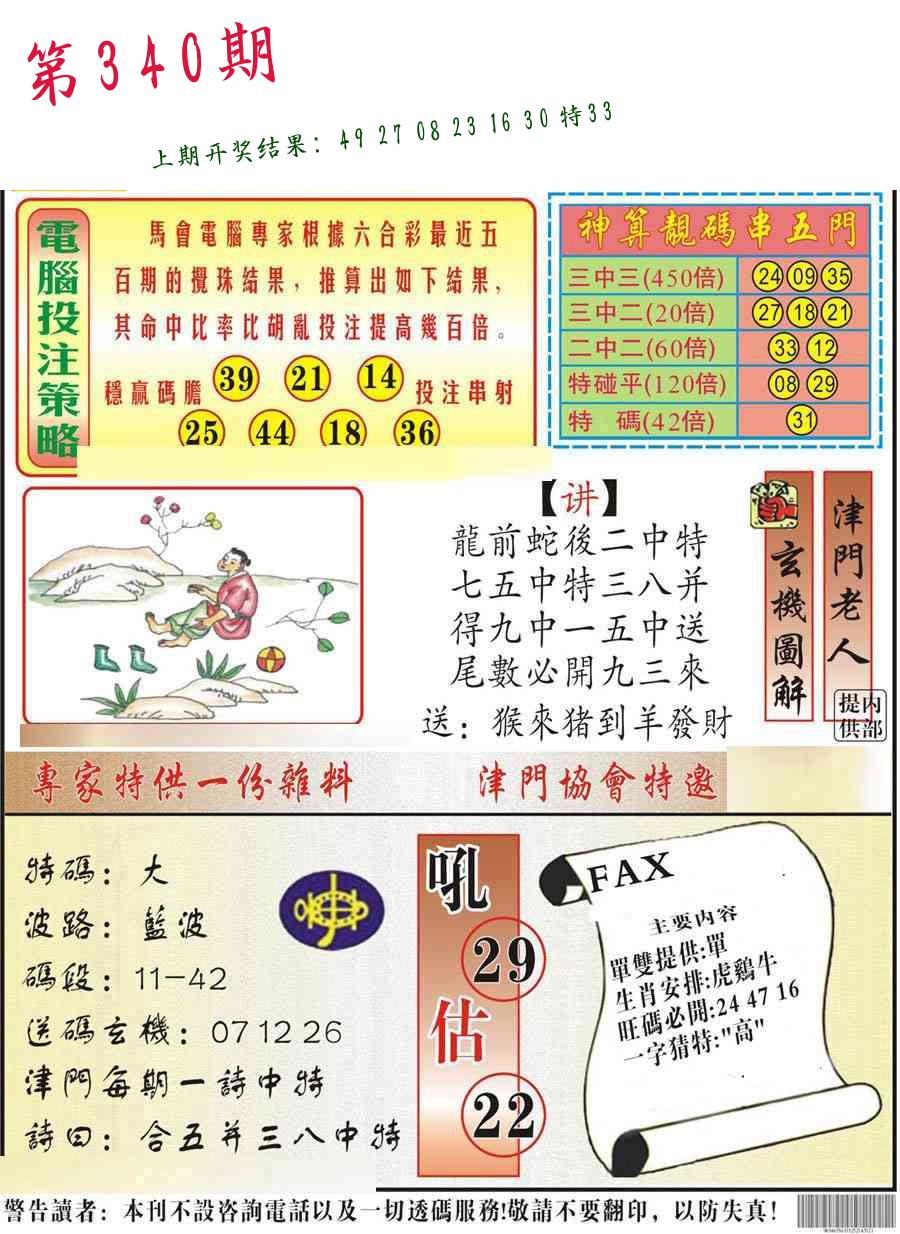 第340期
上期开奖结果：49 27 08 23 16 30 特33
電腦投注策略
馬會電腦專家根據六合彩最近五
百期的攪珠結果，推算出如下結果，
其命中比率比胡亂投注提高幾百倍。
穩贏碼膽 39 21 14 投注串射
25 44 18 36
神算靚碼串五門
三中三(450倍) 24 09 35
三中二(20倍) 27 18 21
二中二(60倍) 33 12
特碰平(120倍) 08 29
特 碼(42倍) 31
【讲】
龍前蛇後二中特
七五中特三八并
得九中一五中送
尾數必開九三來
送：猴來猪到羊發財
玄機圖解
津門老人
内部提供
專家特供一份雜料
津門協會特邀
特碼：大
波路：藍波
碼段：11-42
送碼玄機：07 12 26
津門每期一詩中特
詩曰：合五并三八中特
吼
29
估
22
FAX
主要内容
單雙提供:單
生肖安排:虎鷄牛
旺碼必開:24 47 16
一字猜特:"高"
警告讀者：本刊不設咨詢電話以及一切透碼服務!敬請不要翻印，以防失真!